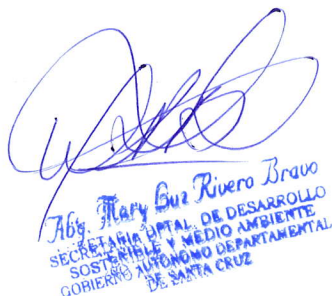 Abg. Mary Luz Rivero Bravo
SECRETARIA DPTAL. DE DESARROLLO
SOSTENIBLE Y MEDIO AMBIENTE
GOBIERNO AUTÓNOMO DEPARTAMENTAL
DE SANTA CRUZ